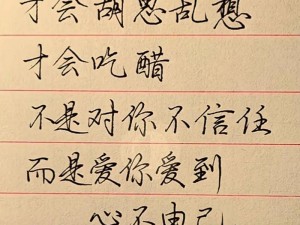 才会胡思乱想
才会吃醋
不是对你不信任
而是爱你爱到
心不由己